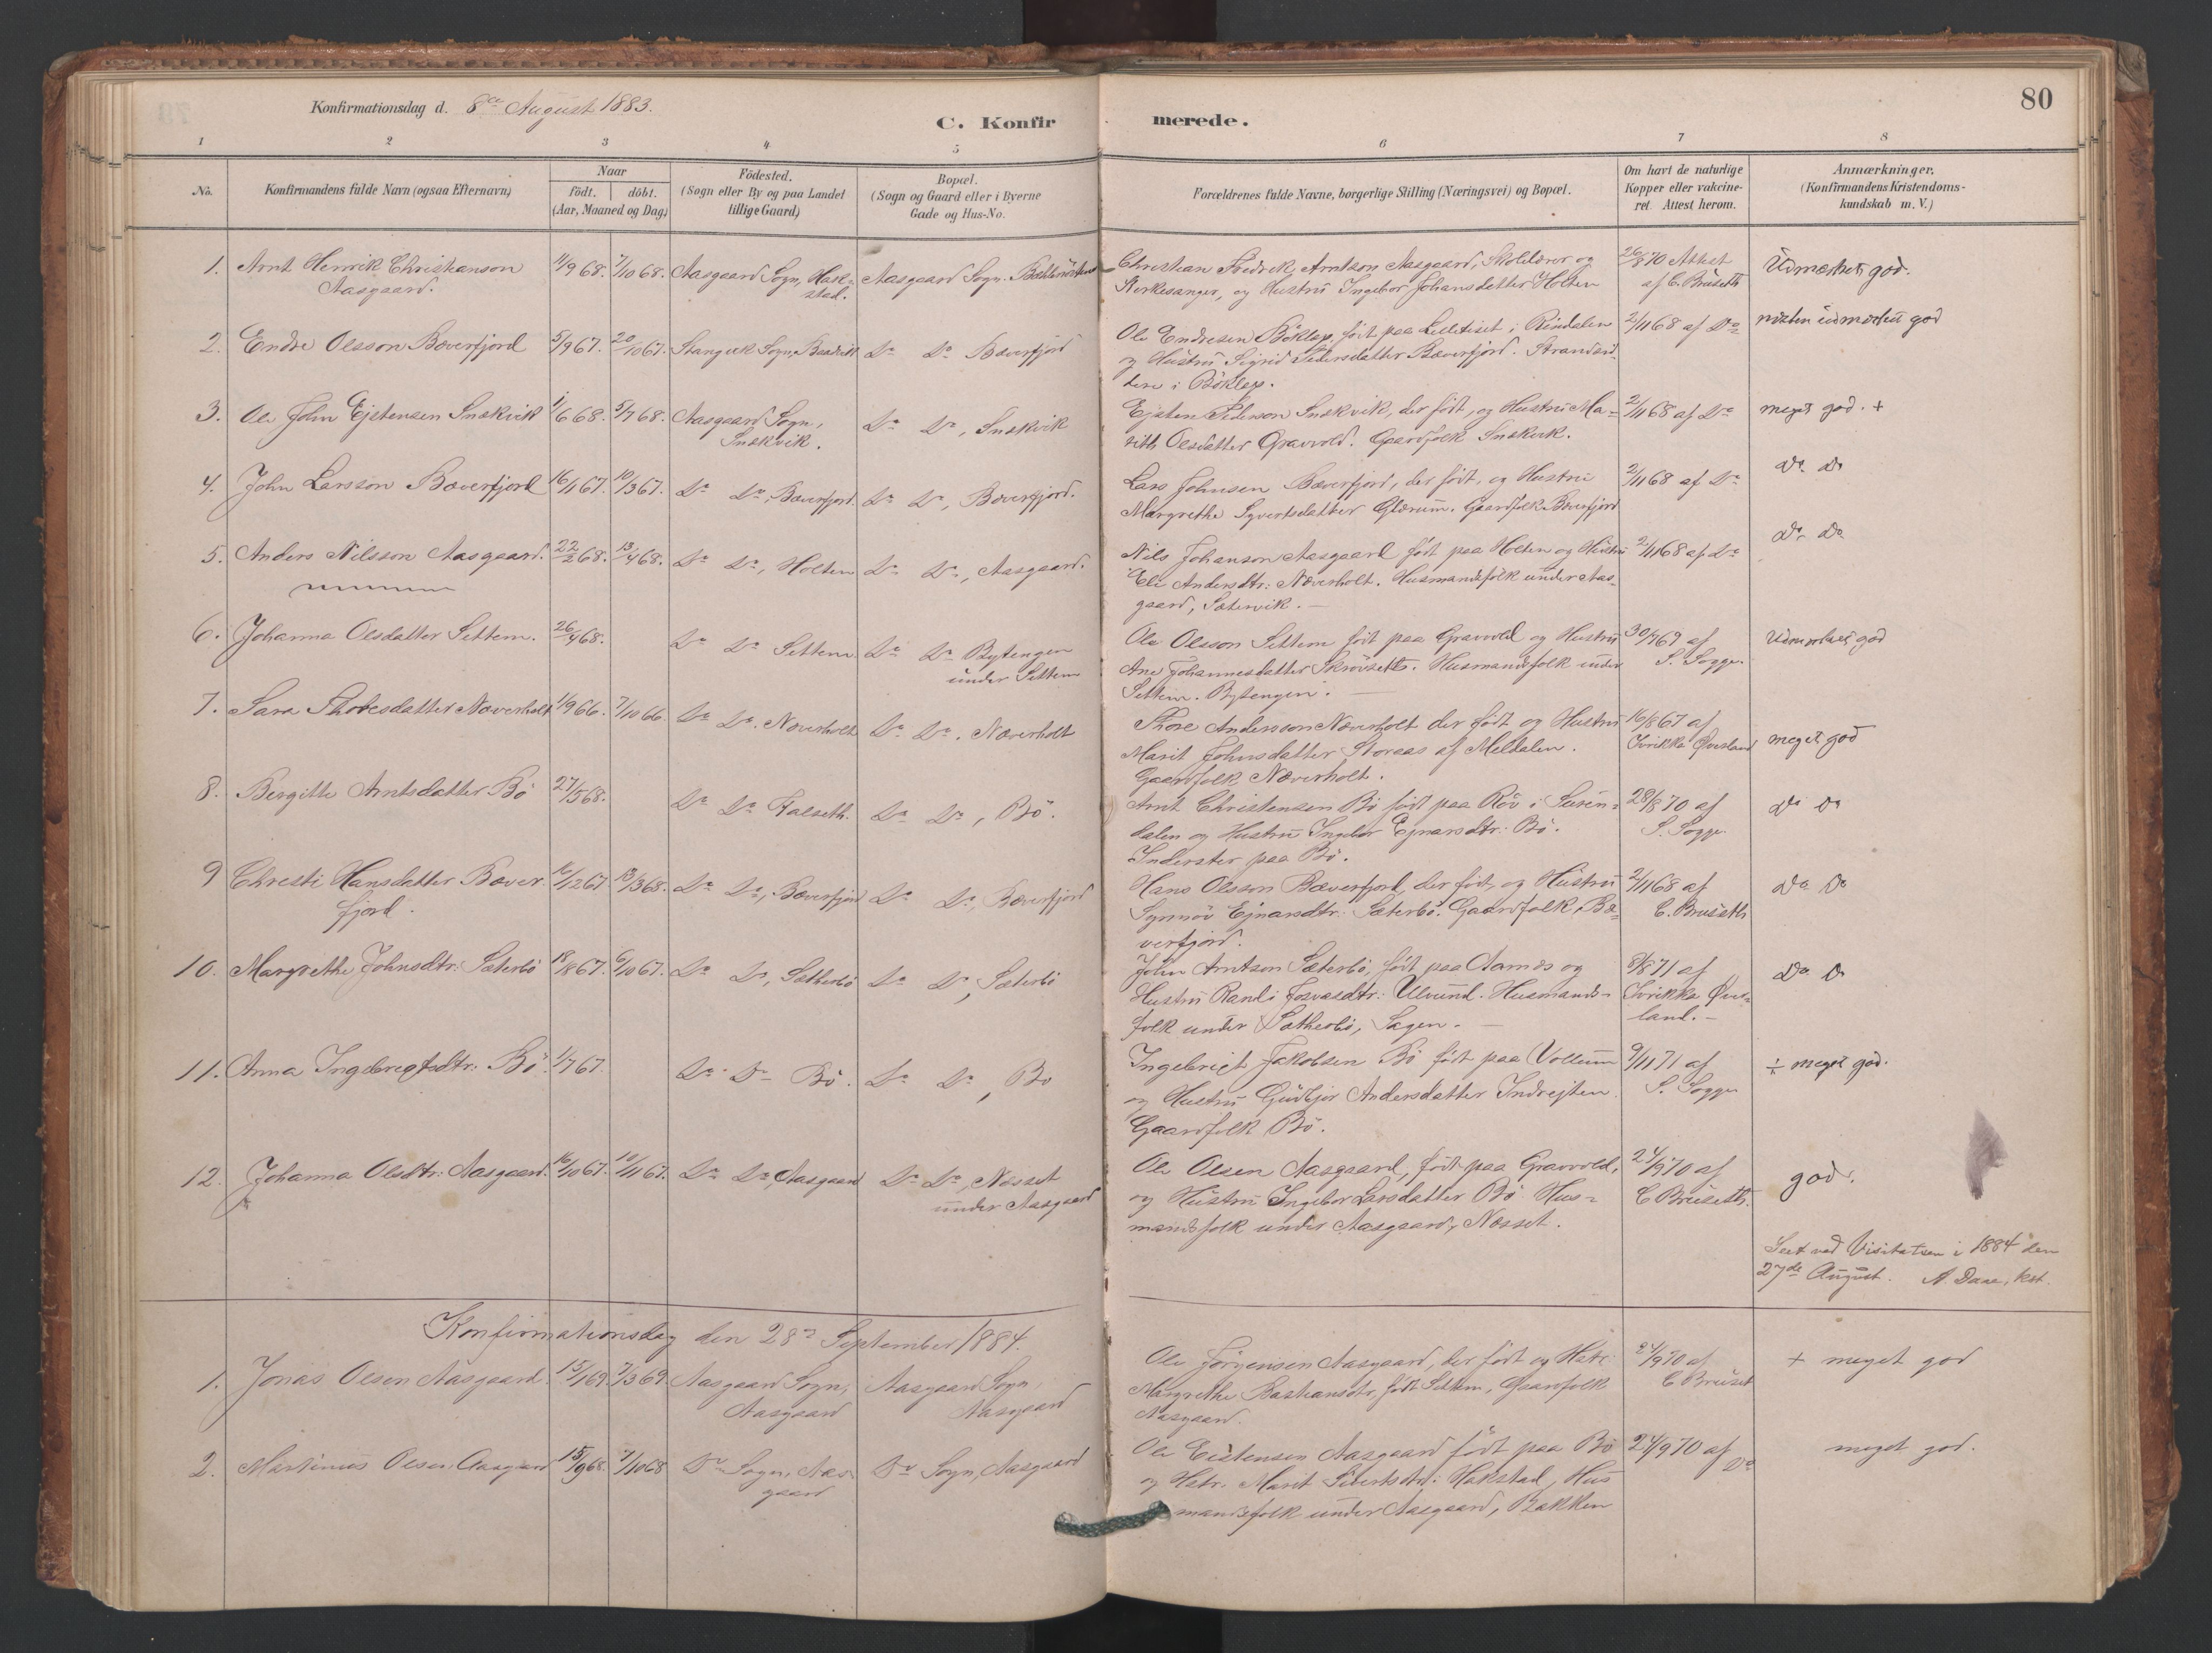 80
Konfirmationsdag d. 8de August 1883.
C. Konfirmerede.
1 2 3 4 5 6 7 8
No.
Konfirmandens fulde Navn (ogsaa Efternavn)
Naar
födt. döbt.
(Aar, Maaned og Dag)
Födested.
(Sogn eller By og paa Landet
tillige Gaard)
Bopæl.
(Sogn og Gaard eller i Byerne
Gade og Hus-No.
Forældrenes fulde Navne, borgerlige Stilling (Næringsvei) og Bopæl.
Om havt de naturlige
Kopper eller vakcine-
ret. Attest herom.
Anmærkninger.
(Konfirmandens Kristendoms-
kundskab m. V.)
1. Arnt Henrik Christianson
Aasgaard.
7/10 68.
Aasgaard Sogn, Hak-
stad.
Aasgaard Sogn.
Christian Fredrik Arntson Aasgaard, Skolelærer og
Kirkesanger, og Hustru Ingebor Johansdatter Holten
26/8 70 Attest
af C. Bruseth
Udmærket god.
2. Endre Olsson Bæverfjord
5/9 67. 20/10 67.
Stangvik Sogn,
Do Do Bæverfjord
Ole Endresen Böklep, födt paa i Rindalen
og Hustru Sigrid Pedersdatter Bæverfjord. Strandsid-
dere i Böklep.
2/11 68 af Do
næsten udmærket god
3. Ole John Ejstensen Snekvik
1/6 68. 5/7 68.
Aasgaard Sogn,
Snekvik.
Do Do, Snekvik
Ejsten Pederson Snekvik, der födt, og Hustru Ma-
rith Olsdatter Gravvold. Gaardfolk Snekvik.
2/11 68 af Do
meget god. +
4. John Larsson Bæverfjord
16/1 67. 10/3 67.
Do Do, Bæverfjord.
Do Do, Bæverfjord.
Lars Johnsen Bæverfjord, der födt, og Hustru
Margrethe Syvertsdatter Glærum. Gaardfolk Bæverfjord
2/11 68 af Do
Do Do
5. Anders Nilsson Aasgaard.
22/2 68. 13/4 68.
Do Do, Holten
Do Do, Aasgaard.
Nils Johanson Aasgaard födt paa Holten og Hustru
Eli Andersdtr: Næverholt. Husmandsfolk under Aas-
gaard, Sætervik. —
2/11 68 af Do
Do Do
6. Johanna Olsdatter Settem.
26/4 68.
Do Do Settem
Do Do Bytengen
under Settem
Ole Olsson Settem födt paa Gravvold og Hustru
Ane Johannesdatter Skrövseth. Husmandsfolk under
Settem. Bytengen. —
30/7 69 af
S. Sogge.
Udmærket god
7. Sara Thoresdatter Næverholt
1/9 66. 7/10 66.
Do Do. Næverholt
Do Do. Næverholt
Thore Andersson Næverholt der födt og Hustru
Marit Johnsdatter Storaas af Meldalen.
Gaardfolk, Næverholt.
16/8 67 af
Ivrikka Øverland
meget god
8. Birgitte Arntsdatter Bö
27/5 68.
Do Do Halseth.
Do Do, Bö.
Arnt Christensen Bö födt paa Röv i Suren-
dalen og Hustru Ingebor Ejnarsdtr: Bö.
Inderster paa Bö.
28/8 70 af
S. Sogge
Do Do
9 Christi Hansdatter Bæver-
fjord.
16/12 67 13/3 68.
Do Do, Bæverfjord
Do Do, Bæverfjord
Hans Olsson Bæverfjord, der födt, og Hustru
Synnöv Ejnarsdtr: Sæterbö. Gaardfolk, Bæ-
verfjord.
2/11 68 af
C. Bruseth
Do Do
10. Margrethe Johnsdtr: Sæterbö
18/8 67. 6/10 67.
Do Do, Sætherbö
Do Do, Sæterbö
John Arntson Sæterbö, födt paa Aamæs og
Hustru Randi Ulvund. Husmands-
folk under Sætherbö, Sagen. —
8/8 71 af
Ivrikka Øver-
land. —
Do Do
11. Anna Ingebrigtsdtr: Bö
1/7 67.
Do Do Bö.
Do Do, Bö
Ingebrigt Jakobsen Bö födt paa Vollum
og Hustru Gudbjör Andersdatter Indrejten
Gaardfolk Bö.
9/11 71 af
S. Sogge
÷ meget god.
12. Johanna Olsdtr: Aasgaard.
16/10 67. 10/11 67.
Do Do, Aasgaard
Do Do, Næsset
under Aasgaard
Ole Olsen Aasgaard, födt paa Gravvold,
og Hustru Ingebor Larsdatter Bö Hus-
mandsfolk under Aasgaard, Næsset.
24/9 70 af
C Bruseth.
god.
Seet ved Visitatsen i 1884 den
27de August. A. Daae, kst.
Konfirmationsdag den 28de September 1884.
1. Jonas Olsen Aasgaard.
15/1 69. 7/3 69.
Aasgaard Sogn,
Aasgaard
Aasgaard Sogn,
Aasgaard
Ole Jörgensen Aasgaard, der födt og Hstr:
Margrethe Bastiansdtr, födt Settem, Gaardfolk
Aasgaard.
24/9 70 af
C Bruset
+ meget god
2. Martinus Olsen Aasgaard
15/9 68. 7/10 68
Do Sogn, Aas-
gaard
Do Sogn, Aasgaard
Ole Eistensen Aasgaard födt paa Bö
og Hstr. Marit Sivertsdtr: Hakstad, Hus
mandsfolk under Aasgaard, Bakken
24/9 70 af Do
meget god.